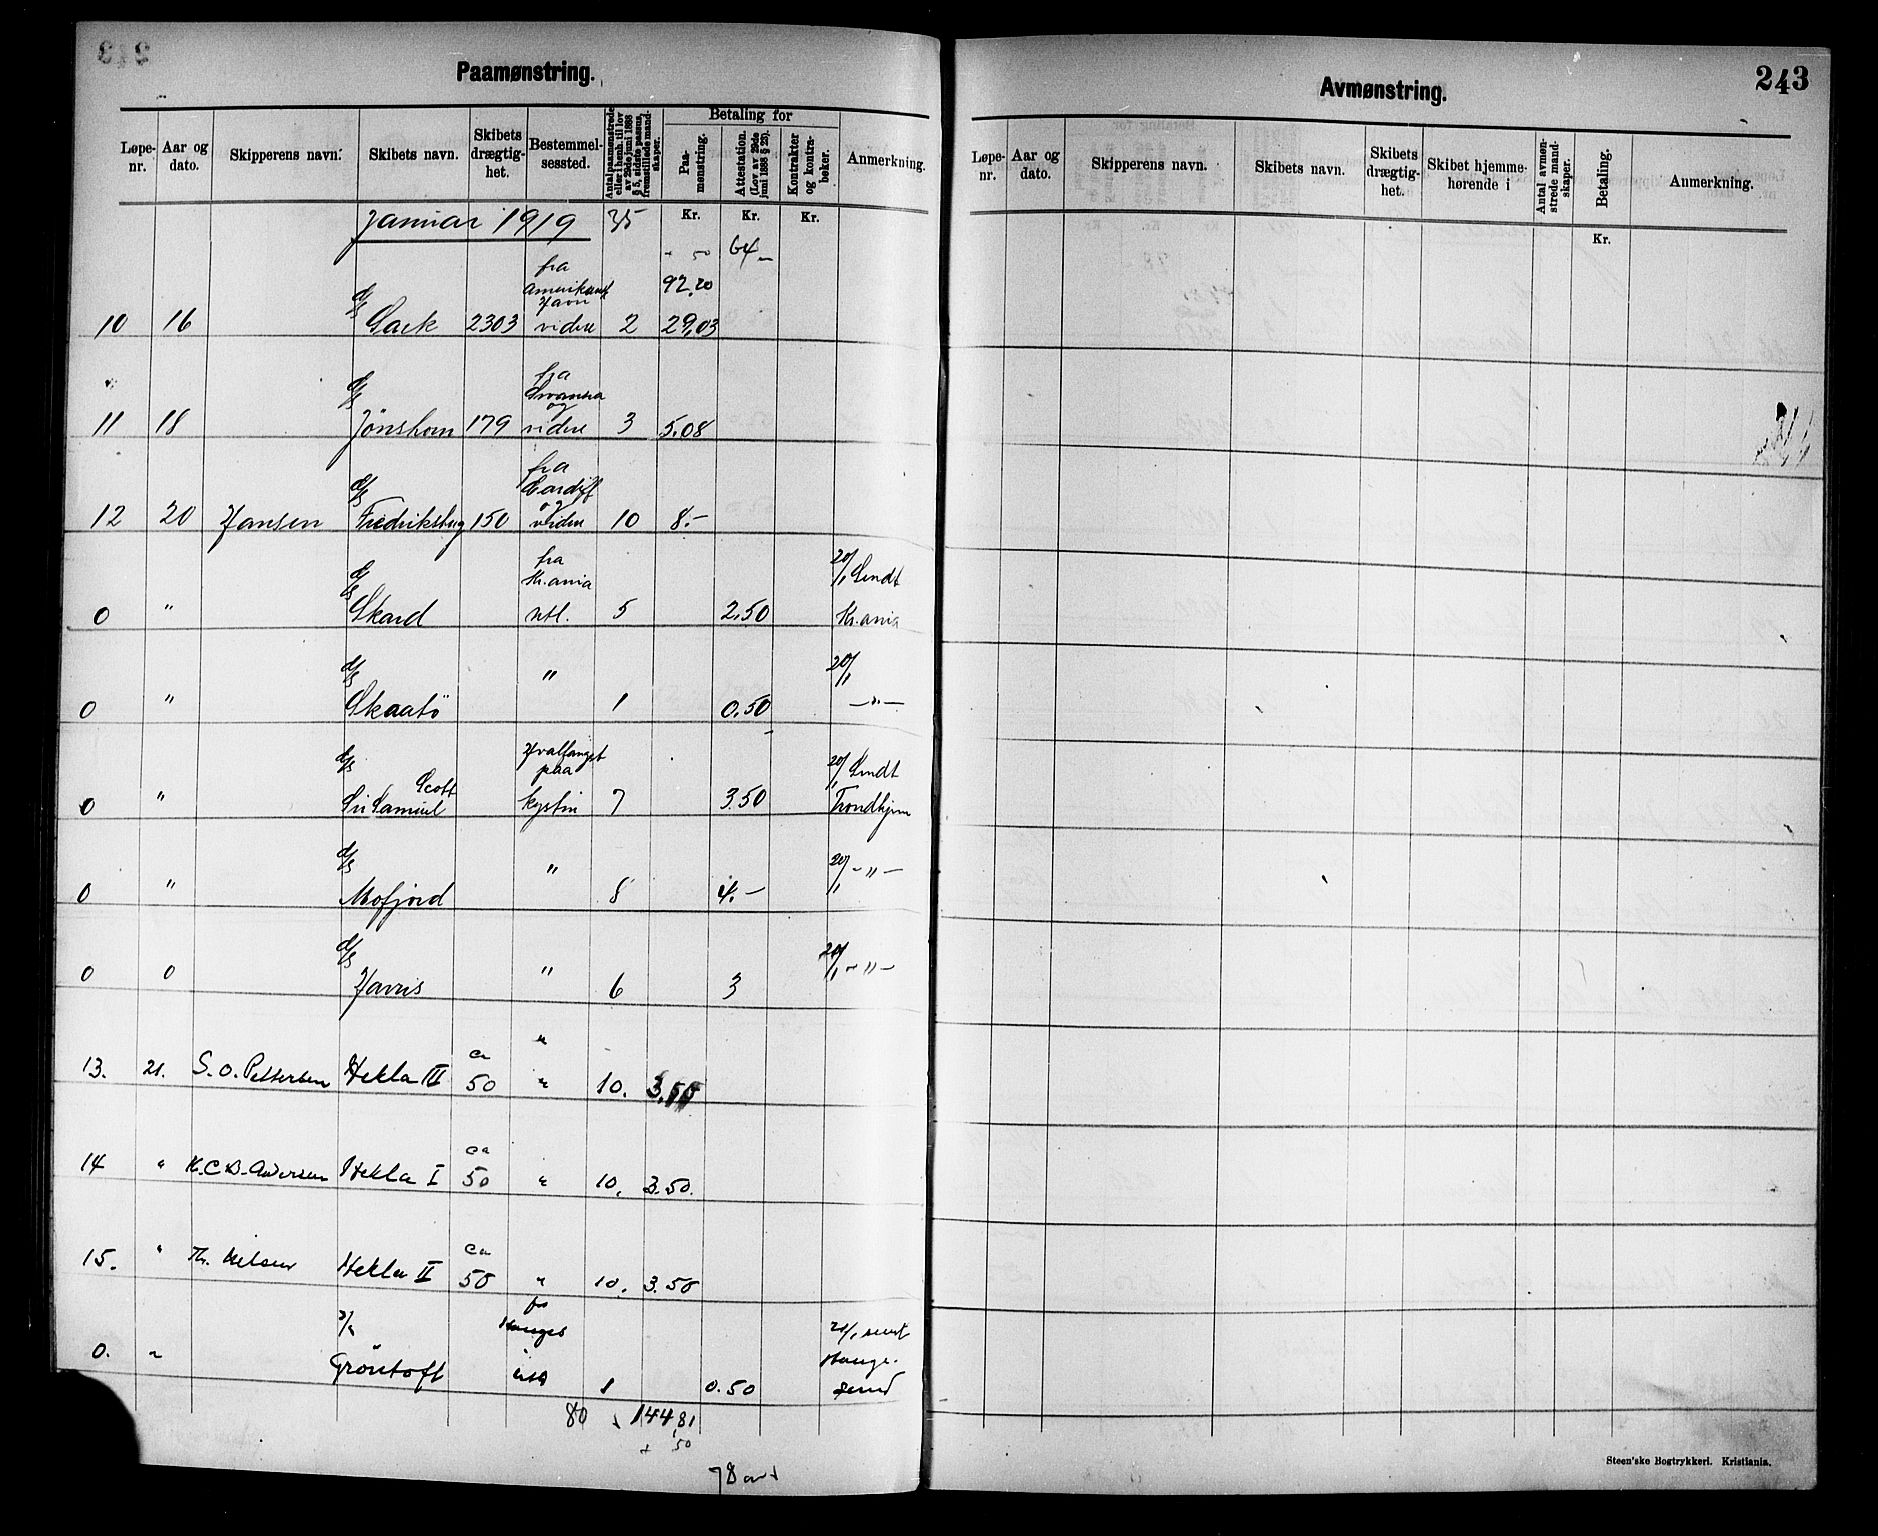 Paamønstring.
Løpe-nr.
Aar og dato.
Skipperens navn.
Skibets navn.
Skibets drægtig-het.
Bestemmel-sessted.
Antal paamønstrede eller i henh. til lov av 29de juni 1888 § 5, sidste passus, fremstillede mand-skaper.
Betaling for
Paa-mønstring.
Attestation. (Lov av 29de juni 1888 § 23).
Kontrakter og kontra-bøker.
Anmerkning.
Januar 1919 35 Kr. Kr. Kr.
+ 50 64.-
fra
Havn 92.20
10 16 d/s Sark 2303 videre 2 29,03
fra
Swansea
og
11 18 d/s Jönshorn 179 videre 3 5.08
fra
Cardiff
og
12 20 Hansen d/s Fredriksberg 150 videre 10 8.-
fra 20/1 Sendt
Kr.ania
0 " d/s Skard utl. 5 2.50 Kr.ania
0 " d/s Skaatö " 1 0.50 20/1 -"-
Hvalfangst 20/1 Sendt
paa
Scott
0 " d/s Sir Samuel kysten 7 3.50 Trondhjem
0 " d/s Mofjord " 8 4.- 20/1 -"-
0 0 d/s " 6 3 20/1 -"-
ca "
13. 21. S. O. Pettersen Hekla III 50 " 10. 3.50
ca
14 " K. C. B. Andersen Hekla I 50 " 10. 3.50.
ca
15. " Th. Nilsen Hekla II 50 " 10. 3.50
fra
21/1 sendt
Hauge-
0. " Gröntoft utl 1 0.50 sund
80 144,81
+ 50
Avmønstring.
243
Løpe-nr.
Aar og dato.
Skipperens navn.
Skibets navn.
Skibets drægtig-het.
Skibet hjemme-hørende i
Antal avmøn-strede mand-skaper.
Betaling.
Anmerkning.
Kr.
Steen'ske Bogtrykkeri. Kristiania.